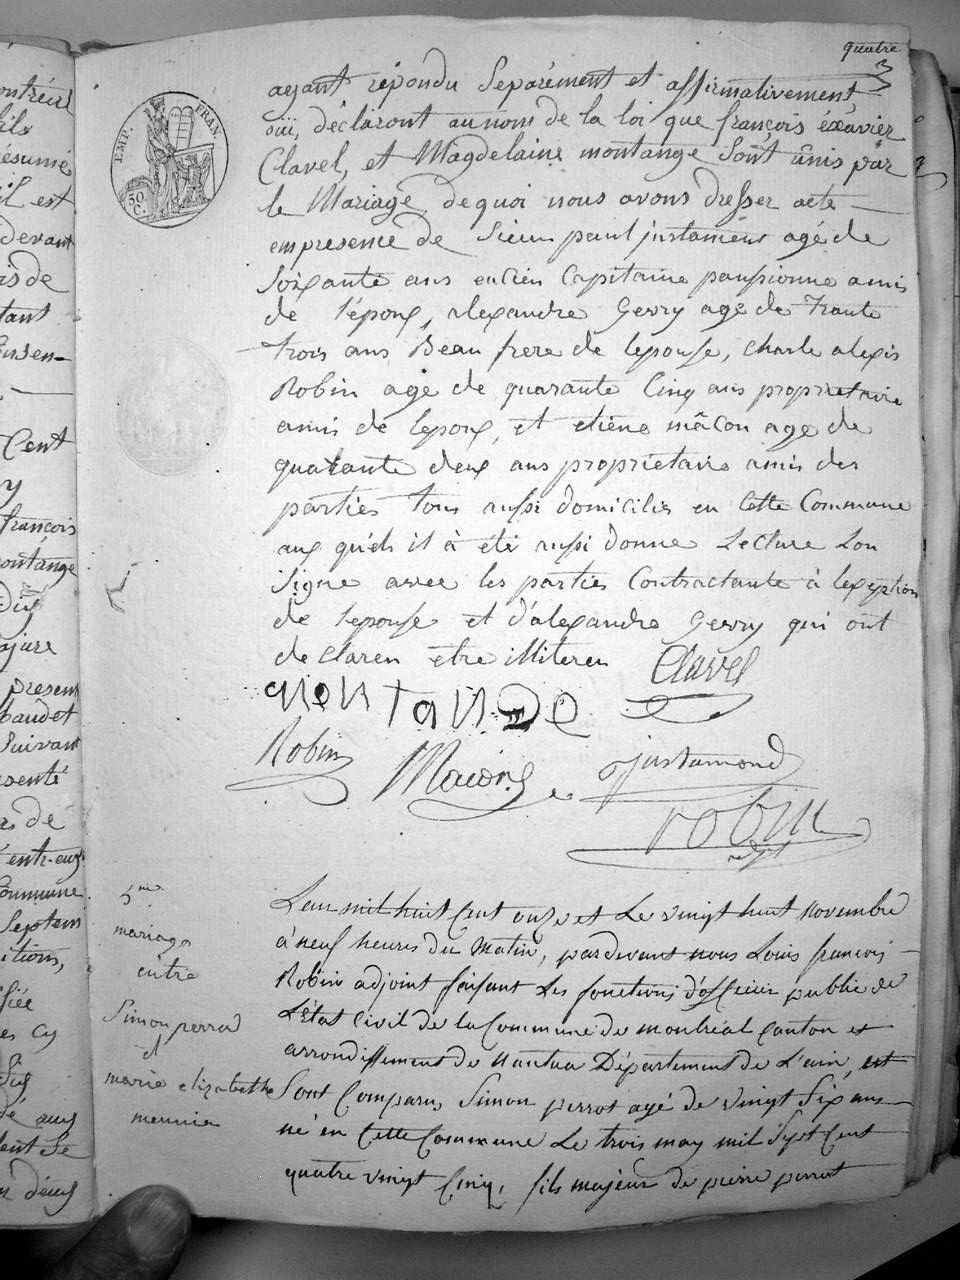 quatre
3
ayant répondu Séparément et affirmativement
oui, déclaront au nom de la loi que françois éxavier
Clavel, et Magdelaine montange Sont ûnis par
le Mariage, de quoi nous avons dresser acte
en presence de Sieur paul justamont agé de
Soixante ans encien Capitaine panssionne amis
de l'époux, alexandre Gevry agé de Trante
trois ans Beau frere de lepouse, charle alexis
Robin age de quarante Cinq ans propriétaire
amis de lepoux, et etiene mâcon age de
quatante deux ans proprietaire amis des
parties tous aussi domiciliés en Cette Commune
aux quels il à été aussi donne Lecture Lon
Signe avec les parties Contractante à lexeption
de lepouse et d'alexandre Gevry qui ont
declaren etre illiteren Clavel
EMP. FRAN.
50 C.
Robin justamond
robin
5me
mariage
entre
Simon perrod
et
marie elizabethe
meunier
L'an mil huit Cent onze et Le vingt huit novembre
à neuf heures du Matin, pardevant nous Louis françois
Robin adjoint faisant Les fonctions d'officier public de
L'état Civil de la Commune de montréal Canton et
arrondissement de Nantua Département de L'ain, est
Sont Comparus Simon perrot agé de vingt Six ans
né en Cette Commune Le trois may mil Sept Cent
quatre vingt Cinq, fils majeur de pierre perrot